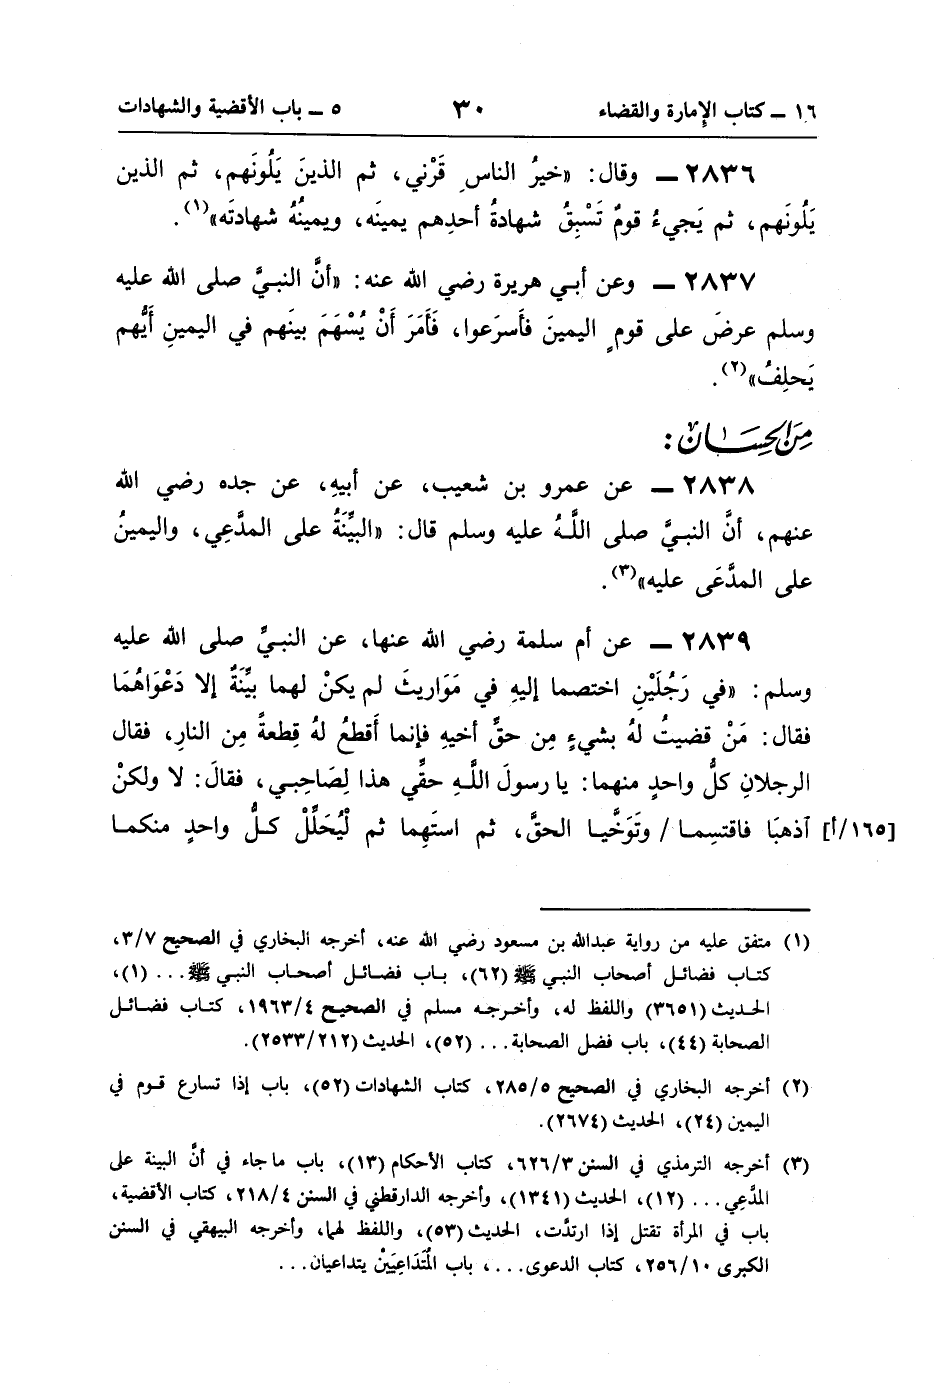 ١٦ ـ كتاب الإمارة والقضاء ٣٠ ٥ ـ باب الأقضية والشهادات
٢٨٣٦ ـ وقال: «خيرُ الناسِ قَرْني، ثم الذينَ يَلُونَهم، ثم الذين
يَلُونَهم، ثم يَجيءُ قومٌ تَسْبِقُ شهادةُ أحدِهم يمينَه، ويمينُهُ شهادتَه»(١).
٢٨٣٧ ـ وعن أبي هريرة رضي الله عنه: «أنَّ النبيَّ صلى الله عليه
وسلم عرضَ على قومٍ اليمينَ فأسرَعوا، فَأَمَرَ أَنْ يُسْهَمَ بينَهم في اليمينِ أَيُّهم
يَحلِفُ»(٢).
مِنَ الحِسَان:
٢٨٣٨ ـ عن عمرو بن شعيب، عن أبيهِ، عن جده رضي الله
عنهم، أنَّ النبيَّ صلى اللَّهُ عليه وسلم قال: «البيِّنَةُ على المدَّعِي، واليمينُ
على المدَّعَى عليه»(٣).
٢٨٣٩ ـ عن أم سلمة رضي الله عنها، عن النبيِّ صلى الله عليه
وسلم: «في رَجُلَيْنِ اختصما إليهِ في مَوَاريثَ لم يكنْ لهما بيِّنَةٌ إلا دَعْوَاهُمَا
فقال: مَنْ قضيتُ لهُ بشيءٍ مِن حقِّ أخيهِ فإنما أَقطعُ لهُ قِطعةً مِن النارِ، فقال
الرجلانِ كلُّ واحدٍ منهما: يا رسولَ اللَّهِ حقِّي هذا لِصَاحِبي، فقالَ: لا ولكنْ
[١٦٥/أ] آذهبَا فاقتسِما / وتَوَخَّيا الحقَّ، ثم استَهِما ثم لْيُحَلِّلْ كلُّ واحدٍ منكما
(١) متفق عليه من رواية عبدالله بن مسعود رضي الله عنه، أخرجه البخاري في الصحيح ٣/٧،
كتاب فضائل أصحاب النبي ﷺ (٦٢)، باب فضائل أصحاب النبي ﷺ... (١)،
الحديث (٣٦٥١) واللفظ له، وأخرجه مسلم في الصحيح ١٩٦٣/٤، كتاب فضائل
الصحابة (٤٤)، باب فضل الصحابة... (٥٢)، الحديث (٢٥٣٣/٢١٢).
(٢) أخرجه البخاري في الصحيح ٢٨٥/٥، كتاب الشهادات (٥٢)، باب إذا تسارع قوم في
اليمين (٢٤)، الحديث (٢٦٧٤).
(٣) أخرجه الترمذي في السنن ٦٢٦/٣، كتاب الأحكام (١٣)، باب ما جاء في أنَّ البينة على
المدَّعِي... (١٢)، الحديث (١٣٤١)، وأخرجه الدارقطني في السنن ٢١٨/٤، كتاب الأقضية،
باب في المرأة تقتل إذا ارتدَّت، الحديث (٥٣)، واللفظ لهما، وأخرجه البيهقي في السنن
الكبرى ٢٥٦/١٠، كتاب الدعوى...، باب المُتَدَاعِيَيْنْ يتداعيان...